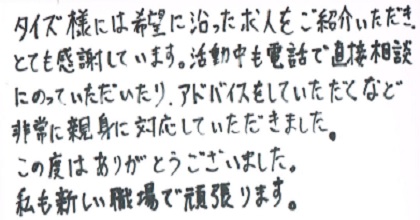 タイズ様には希望に沿った求人をご紹介いただき、
とても感謝しています。活動中も電話で直接相談
にのっていただいたり、アドバイスをしていただくなど
非常に親身に対応していただきました。
この度はありがとうございました。
私も新しい職場で頑張ります。